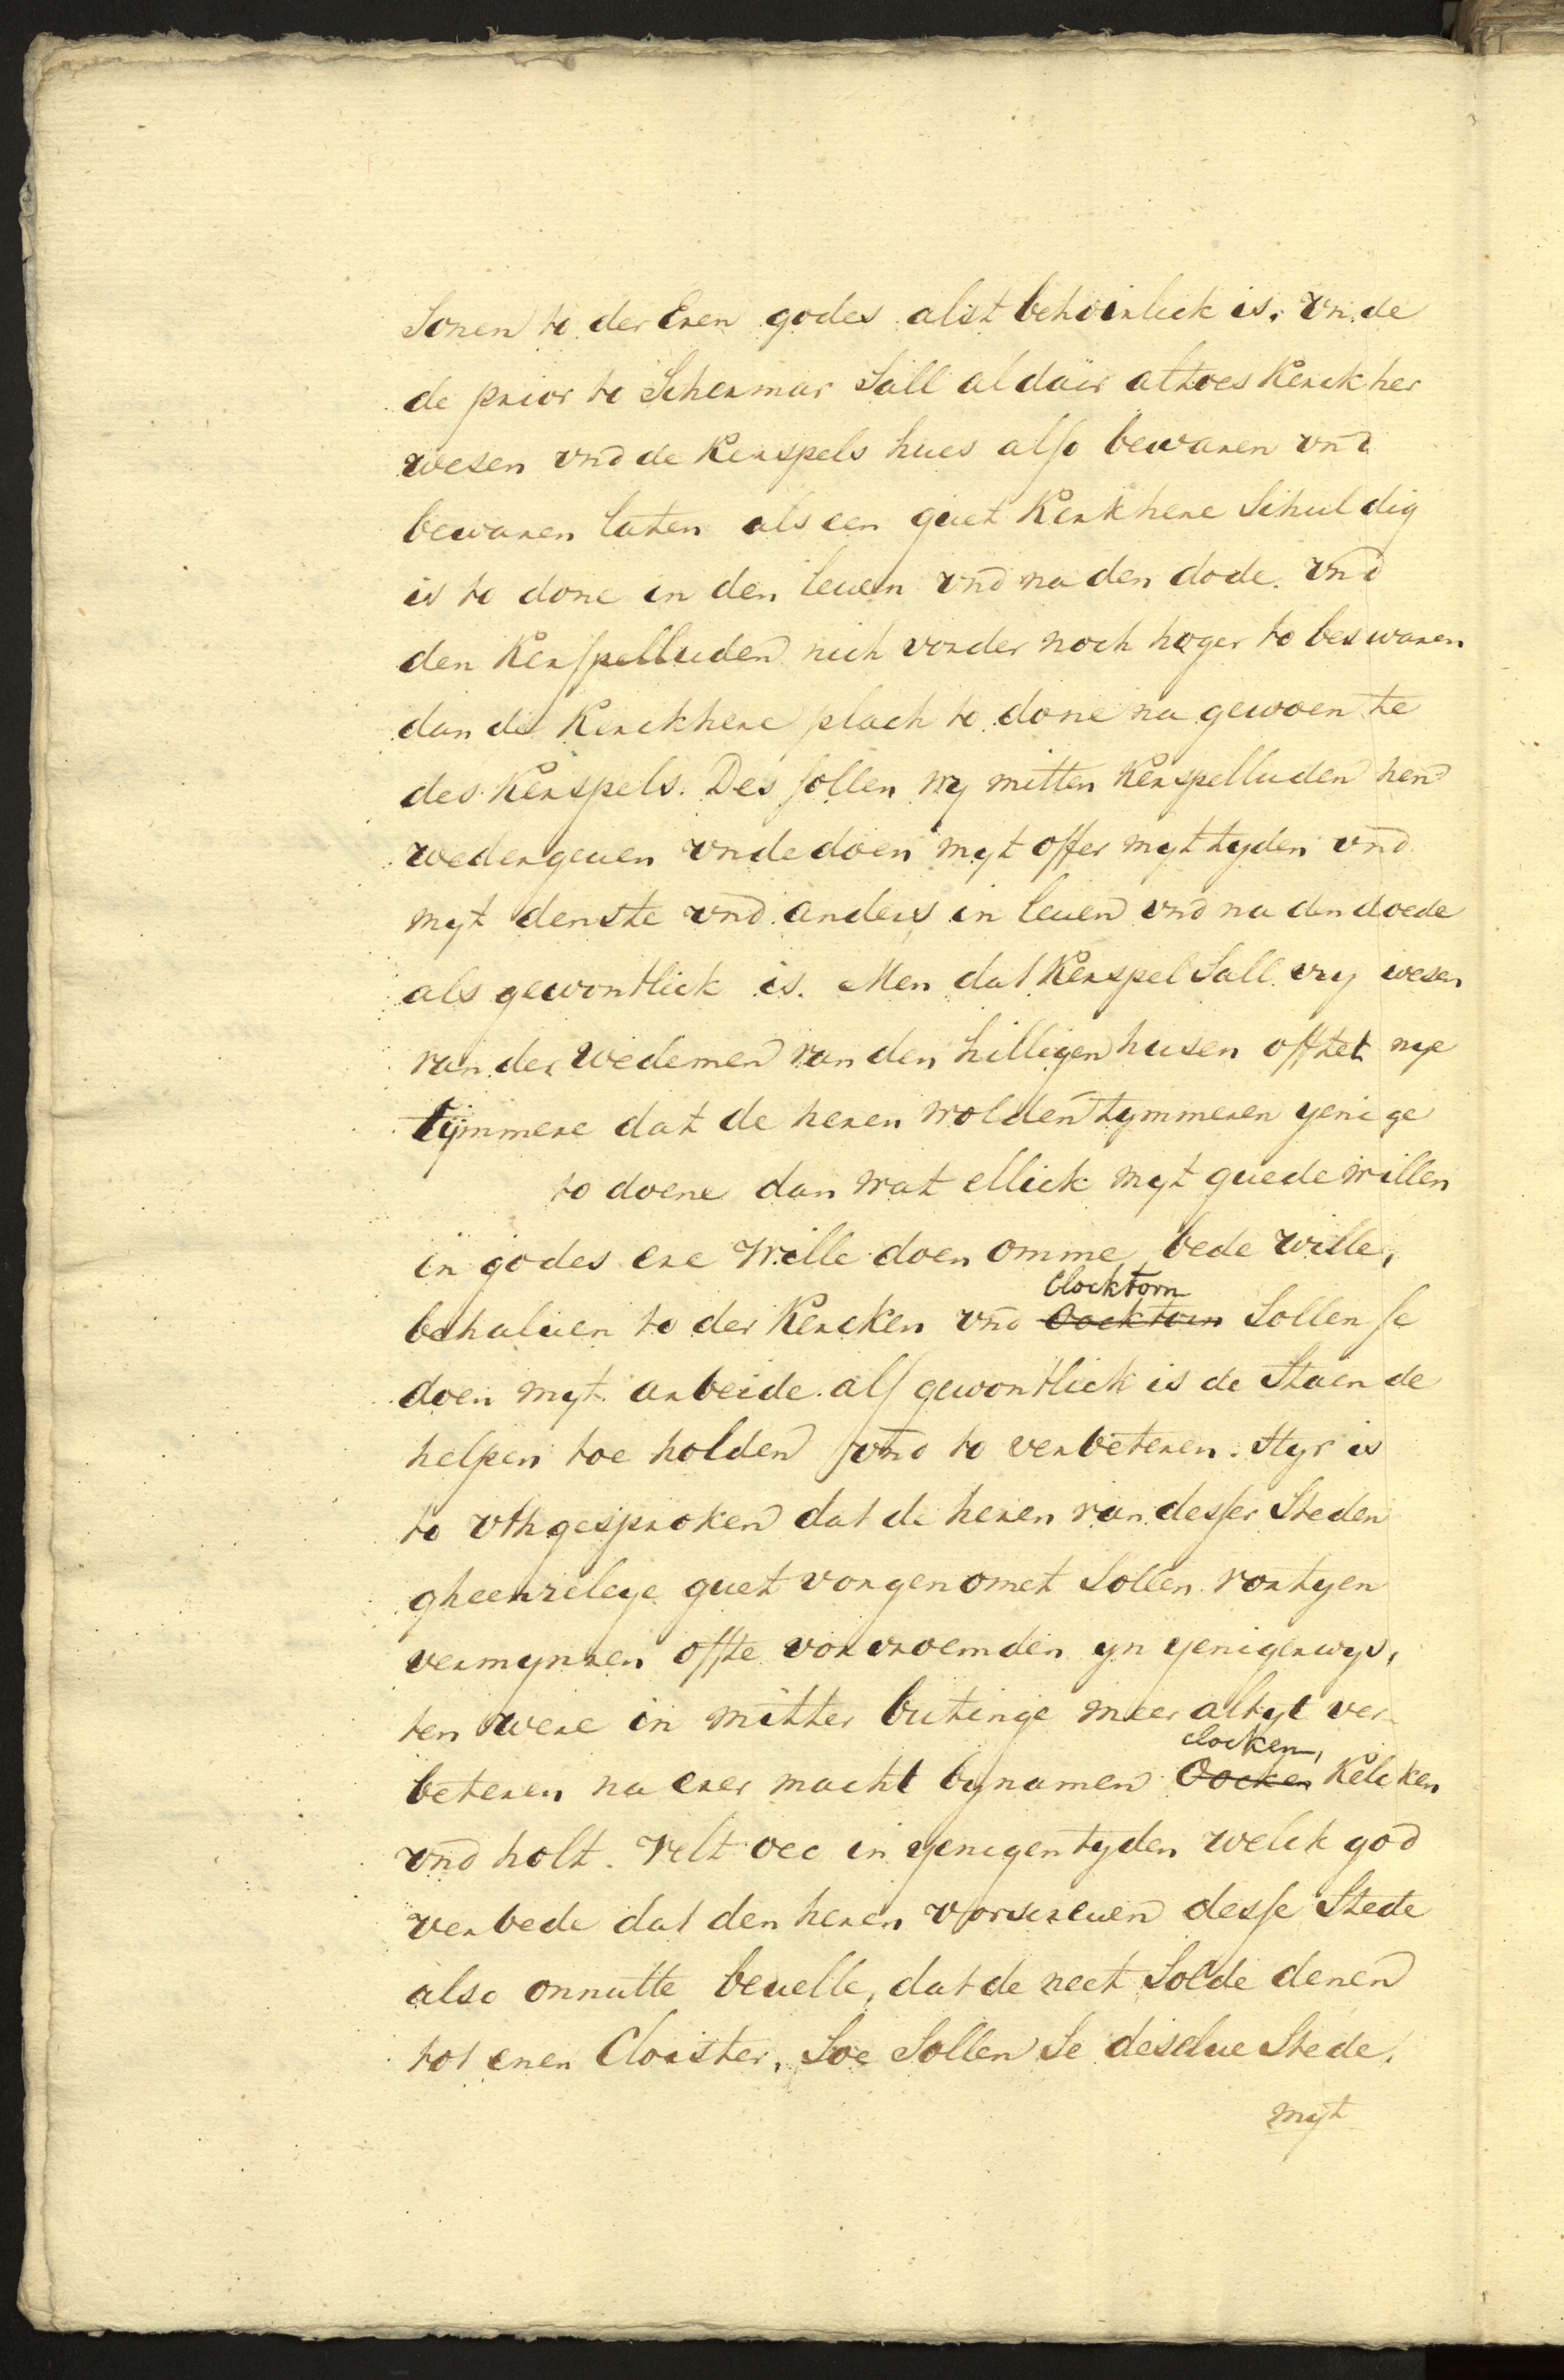 Sonen to der Eren godes alst behoirlick is. vnde
de prior to Schermar Sall aldair altoes Kerckher
wesen vnd de Kerspels hues also bewaren vnd
bewaren laten als een guet Kerkhere Schuldig
is to done in den leuen vnd na den dode. vnd
den Kerspelluden nich vorder noch hoger to beswaren
dan de Kerckhere plach to done na gewoente
des Kerspels. Des sollen wy mitten Kerspelluden hen
wedergeuen vnde doen myt offer myt tyden vnd
myt denste vnd anders in leuen vnd na den doede
als gewontlick is. Men dat Kerspel Sall vry wesen
van der Wedemen van den hilligen husen offtet nye
tymmere dat de heren wolden tymmeren yenige
to doene dan wat ellick myt guede willen
in godes ere wille doen omme bede wille,
behaluen to der Kercken vnd ~~Oocktorn~~ Clocktorn Sollen se
doen myt arbeide als gewontlick is de Staende
helpen toe holden vnd to verbeteren. Hyr is
to vthgesproken dat de heren van desser Steden
gheenreleye guet vorgenomet Sollen vortyen
vermynren offte vorvroemden yn yenigerwys,
ten were in mitter butinge meer altyt ver-
beteren na erer macht bynamen ~~Oocken~~ clocken, Kelcken
vnd holt. Velt oec in yenigen tyden welck god
verbede dat den heren vorscreuen desse Stede
also onnutte beuelle, dat de neet Solde denen
tot enen Cloister, Soe Sollen Se deselue Stede,
myt